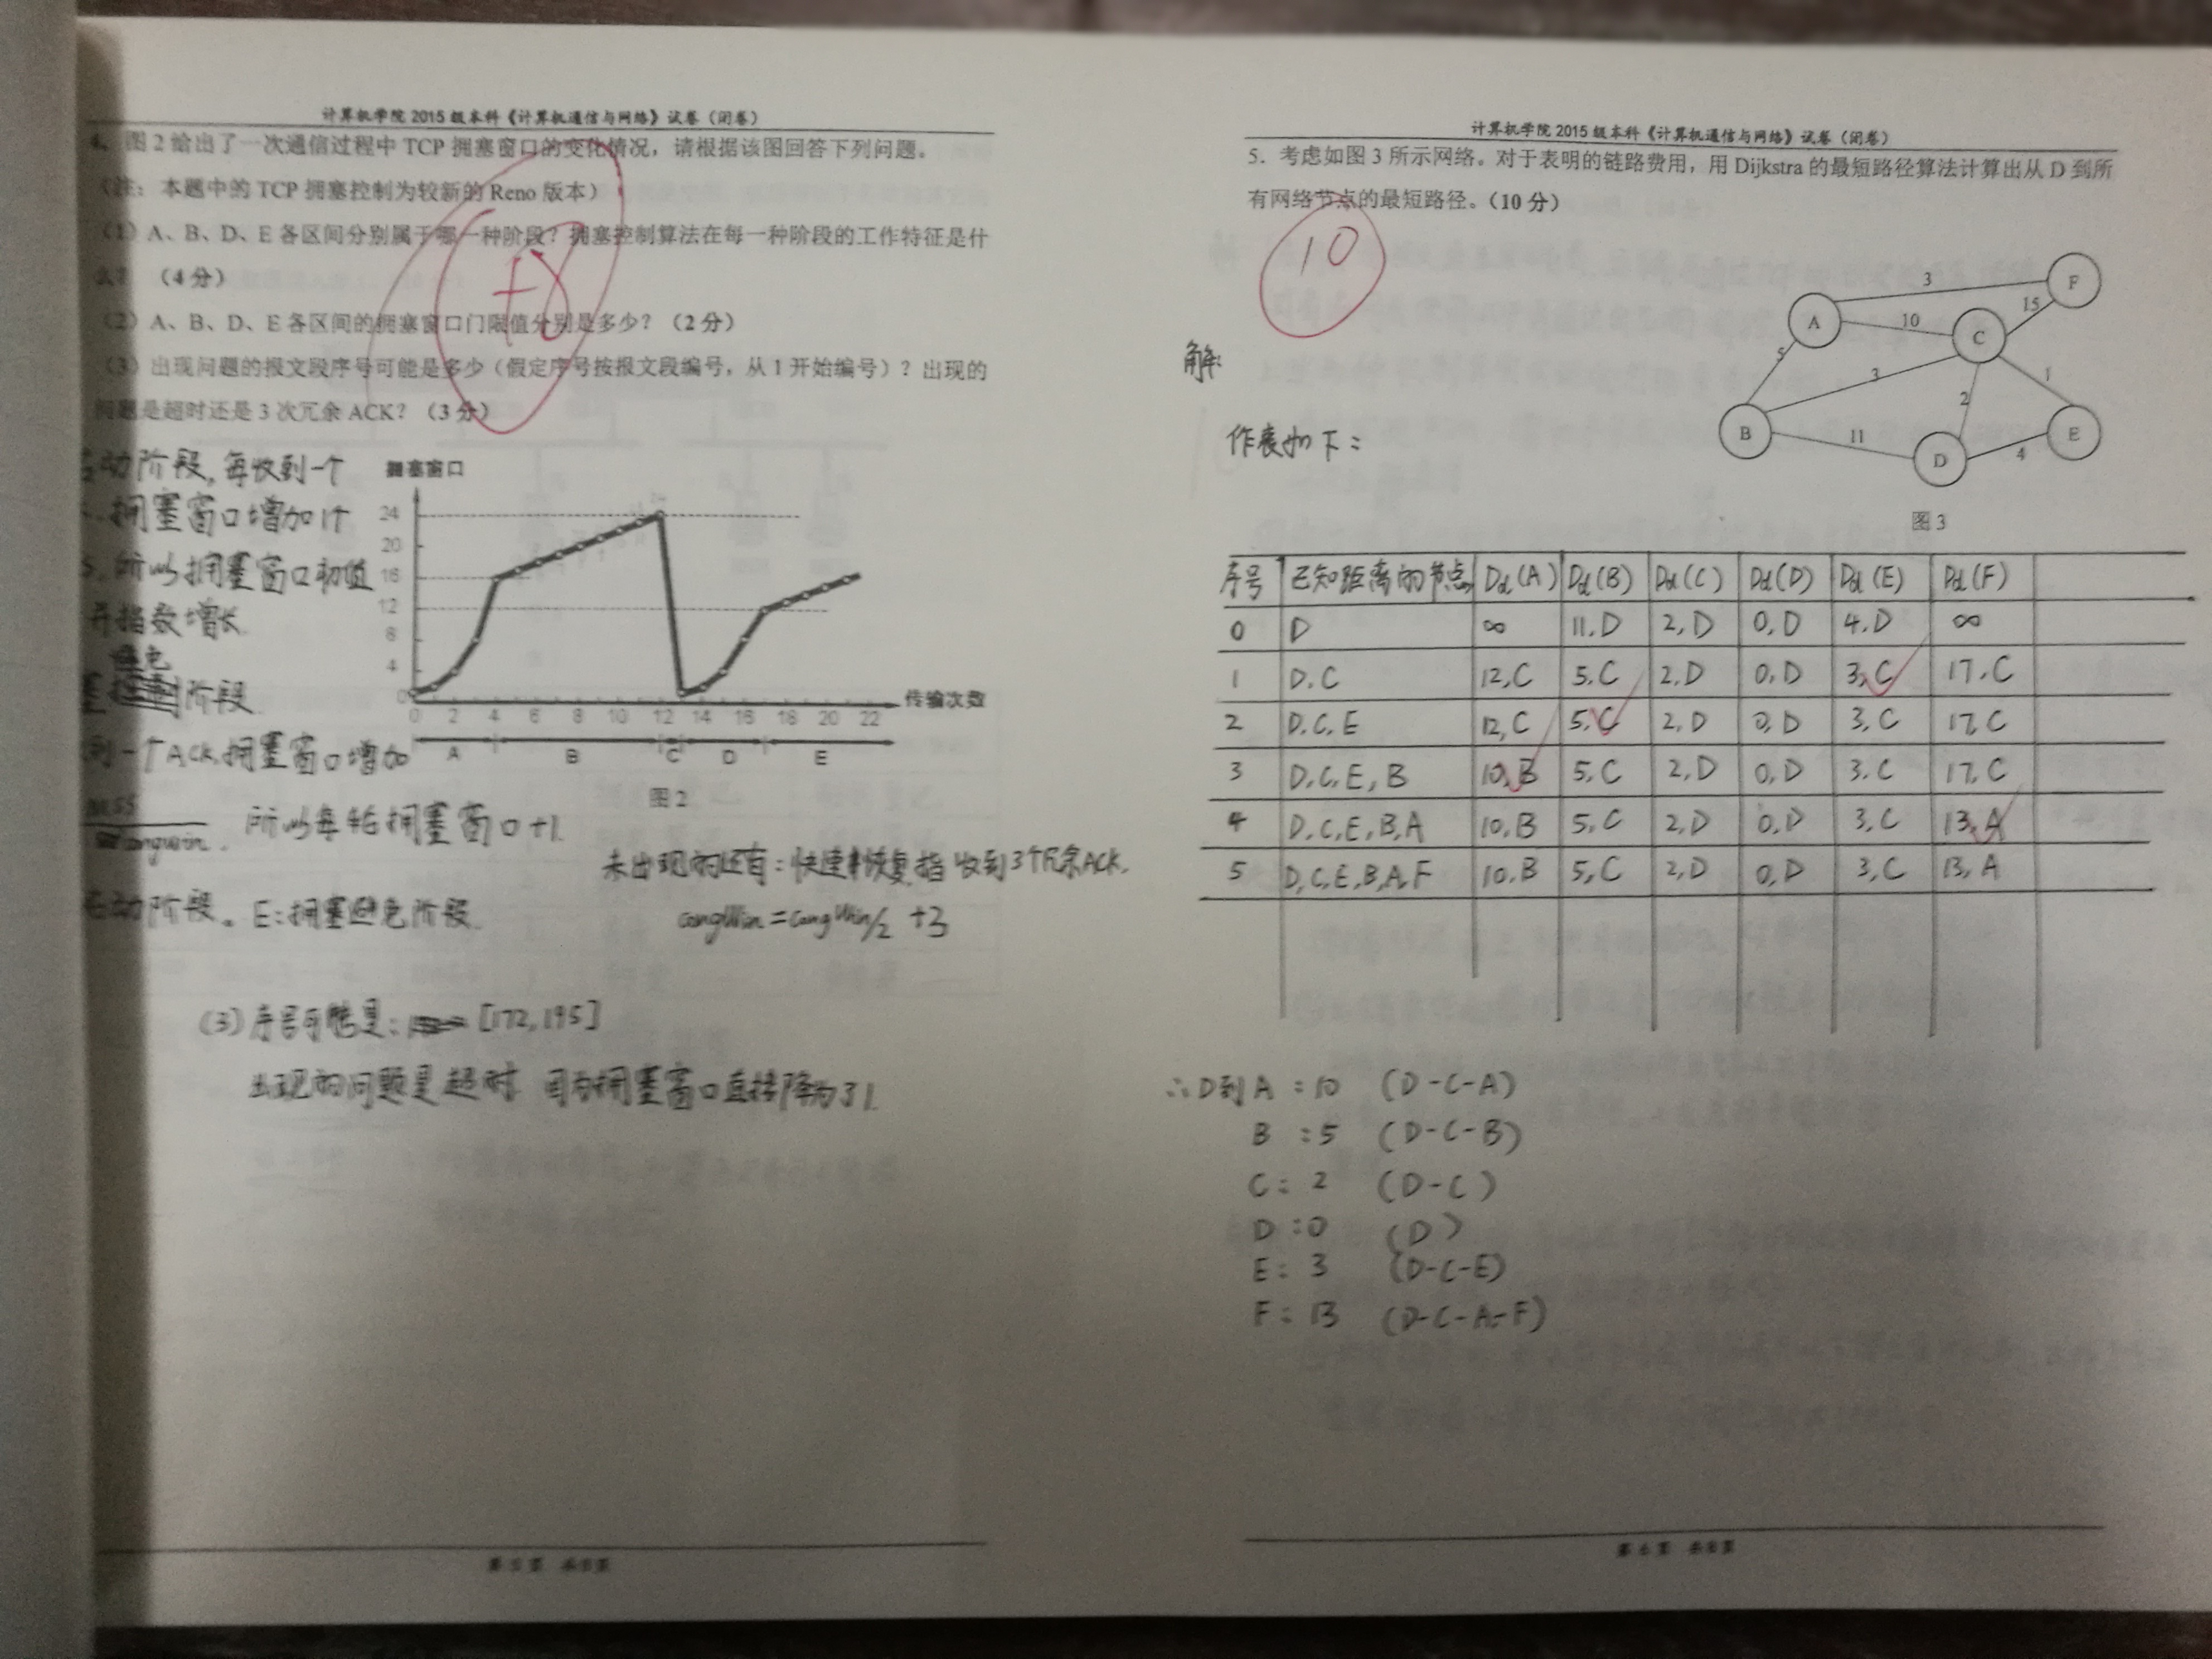 计算机学院 2015 级本科《计算机通信与网络》试卷（闭卷）
4. 图 2 给出了一次通信过程中 TCP 拥塞窗口的变化情况，请根据该图回答下列问题。
（注：本题中的 TCP 拥塞控制为较新的 Reno 版本）
（1）A、B、D、E 各区间分别属于哪一种阶段？拥塞控制算法在每一种阶段的工作特征是什
么？（4 分）
（2）A、B、D、E 各区间的拥塞窗口门限值分别是多少？（2 分）
（3）出现问题的报文段序号可能是多少（假定序号按报文段编号，从 1 开始编号）？出现的
问题是超时还是 3 次冗余 ACK？（3 分）
+8
启动阶段,每收到一个
拥塞窗口增加1个
所以拥塞窗口初值
并指数增长.
避免
阶段.
到一个ACK,拥塞窗口增加
MSS
所以每轮拥塞窗口+1.
启动阶段。E:拥塞避免阶段.
拥塞窗口
24
20
16
12
8
4
0
0 2 4 6 8 10 12 14 16 18 20 22
传输次数
A B C D E
图 2
未出现的还有:快速恢复,指收到3个冗余ACK.
CongWin=CongWin/2 +3
(3)序号可能是: [172,195]
出现的问题是超时 因为拥塞窗口直接降为了1.
第 5 页 共 8 页
计算机学院 2015 级本科《计算机通信与网络》试卷（闭卷）
5. 考虑如图 3 所示网络。对于表明的链路费用，用 Dijkstra 的最短路径算法计算出从 D 到所
有网络节点的最短路径。（10 分）
10
解:
作表如下:
A B C D E F
3
10
15
5
3
1
2
11
4
图 3
序号 已知距离的节点 Dd(A) Dd(B) Dd(C) Dd(D) Dd(E) Dd(F)
0 D ∞ 11,D 2,D 0,D 4,D ∞
1 D,C 12,C 5,C 2,D 0,D 3,C 17,C
2 D,C,E 12,C 5,C 2,D 0,D 3,C 17,C
3 D,C,E,B 10,B 5,C 2,D 0,D 3,C 17,C
4 D,C,E,B,A 10,B 5,C 2,D 0,D 3,C 13,A
5 D,C,E,B,A,F 10,B 5,C 2,D 0,D 3,C 13,A
∴D到A :10 (D-C-A)
B :5 (D-C-B)
C: 2 (D-C)
D :0 (D)
E: 3 (D-C-E)
F: 13 (D-C-A-F)
第 6 页 共 8 页